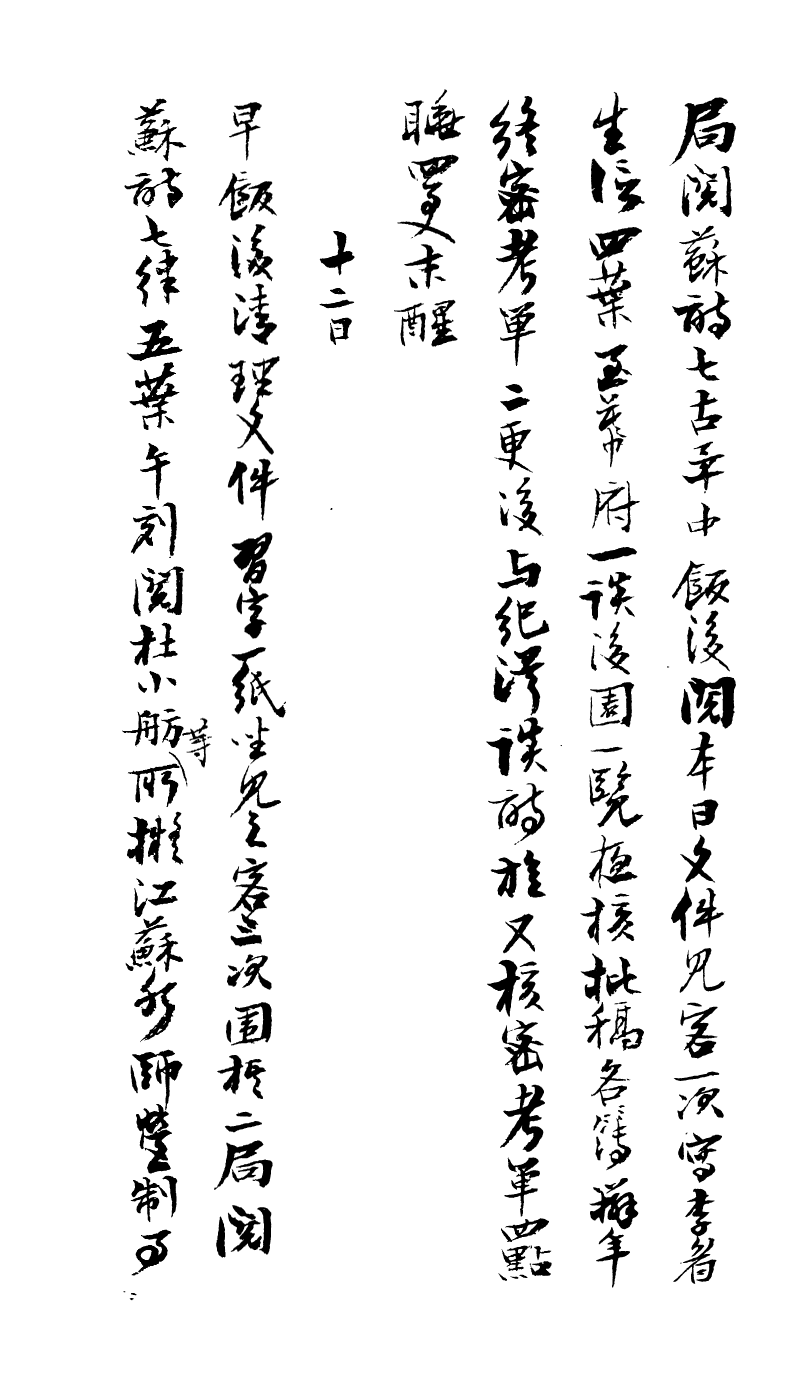 局閱蘇詩七古至中飯後閱本日文件見客一次寫李眉
生信四葉至幕府一談後園一覽極核批稿各簿核年
終密考單二更後与紀澤談詩旋又核密考單四點
睡四更末醒
十二日
早飯後清理文件習字一紙坐見之客三次圍棋二局閱
蘇詩七律五葉午刻閱杜小舫等所擬江蘇水師營制事